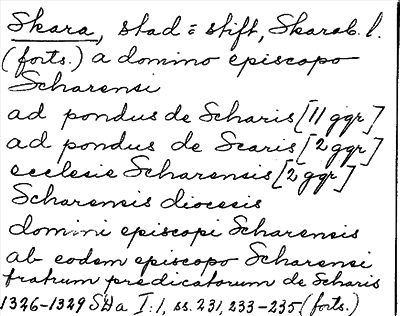 Skara, stad = stift, Skarab. l.
(forts.) a domino episcopo
Scharensi
ad pondus de Scharis [11 ggr]
ad pondus de Scaris [2 ggr]
ecclesie Scharensis [2 ggr]
Scharensis diocesis
domini episcopi Scharensis
ab eodem episcopo Scharensi
fratrum predicatorum de Scharis
1326-1329 SDa I:1, ss. 231, 233-235 (forts.)